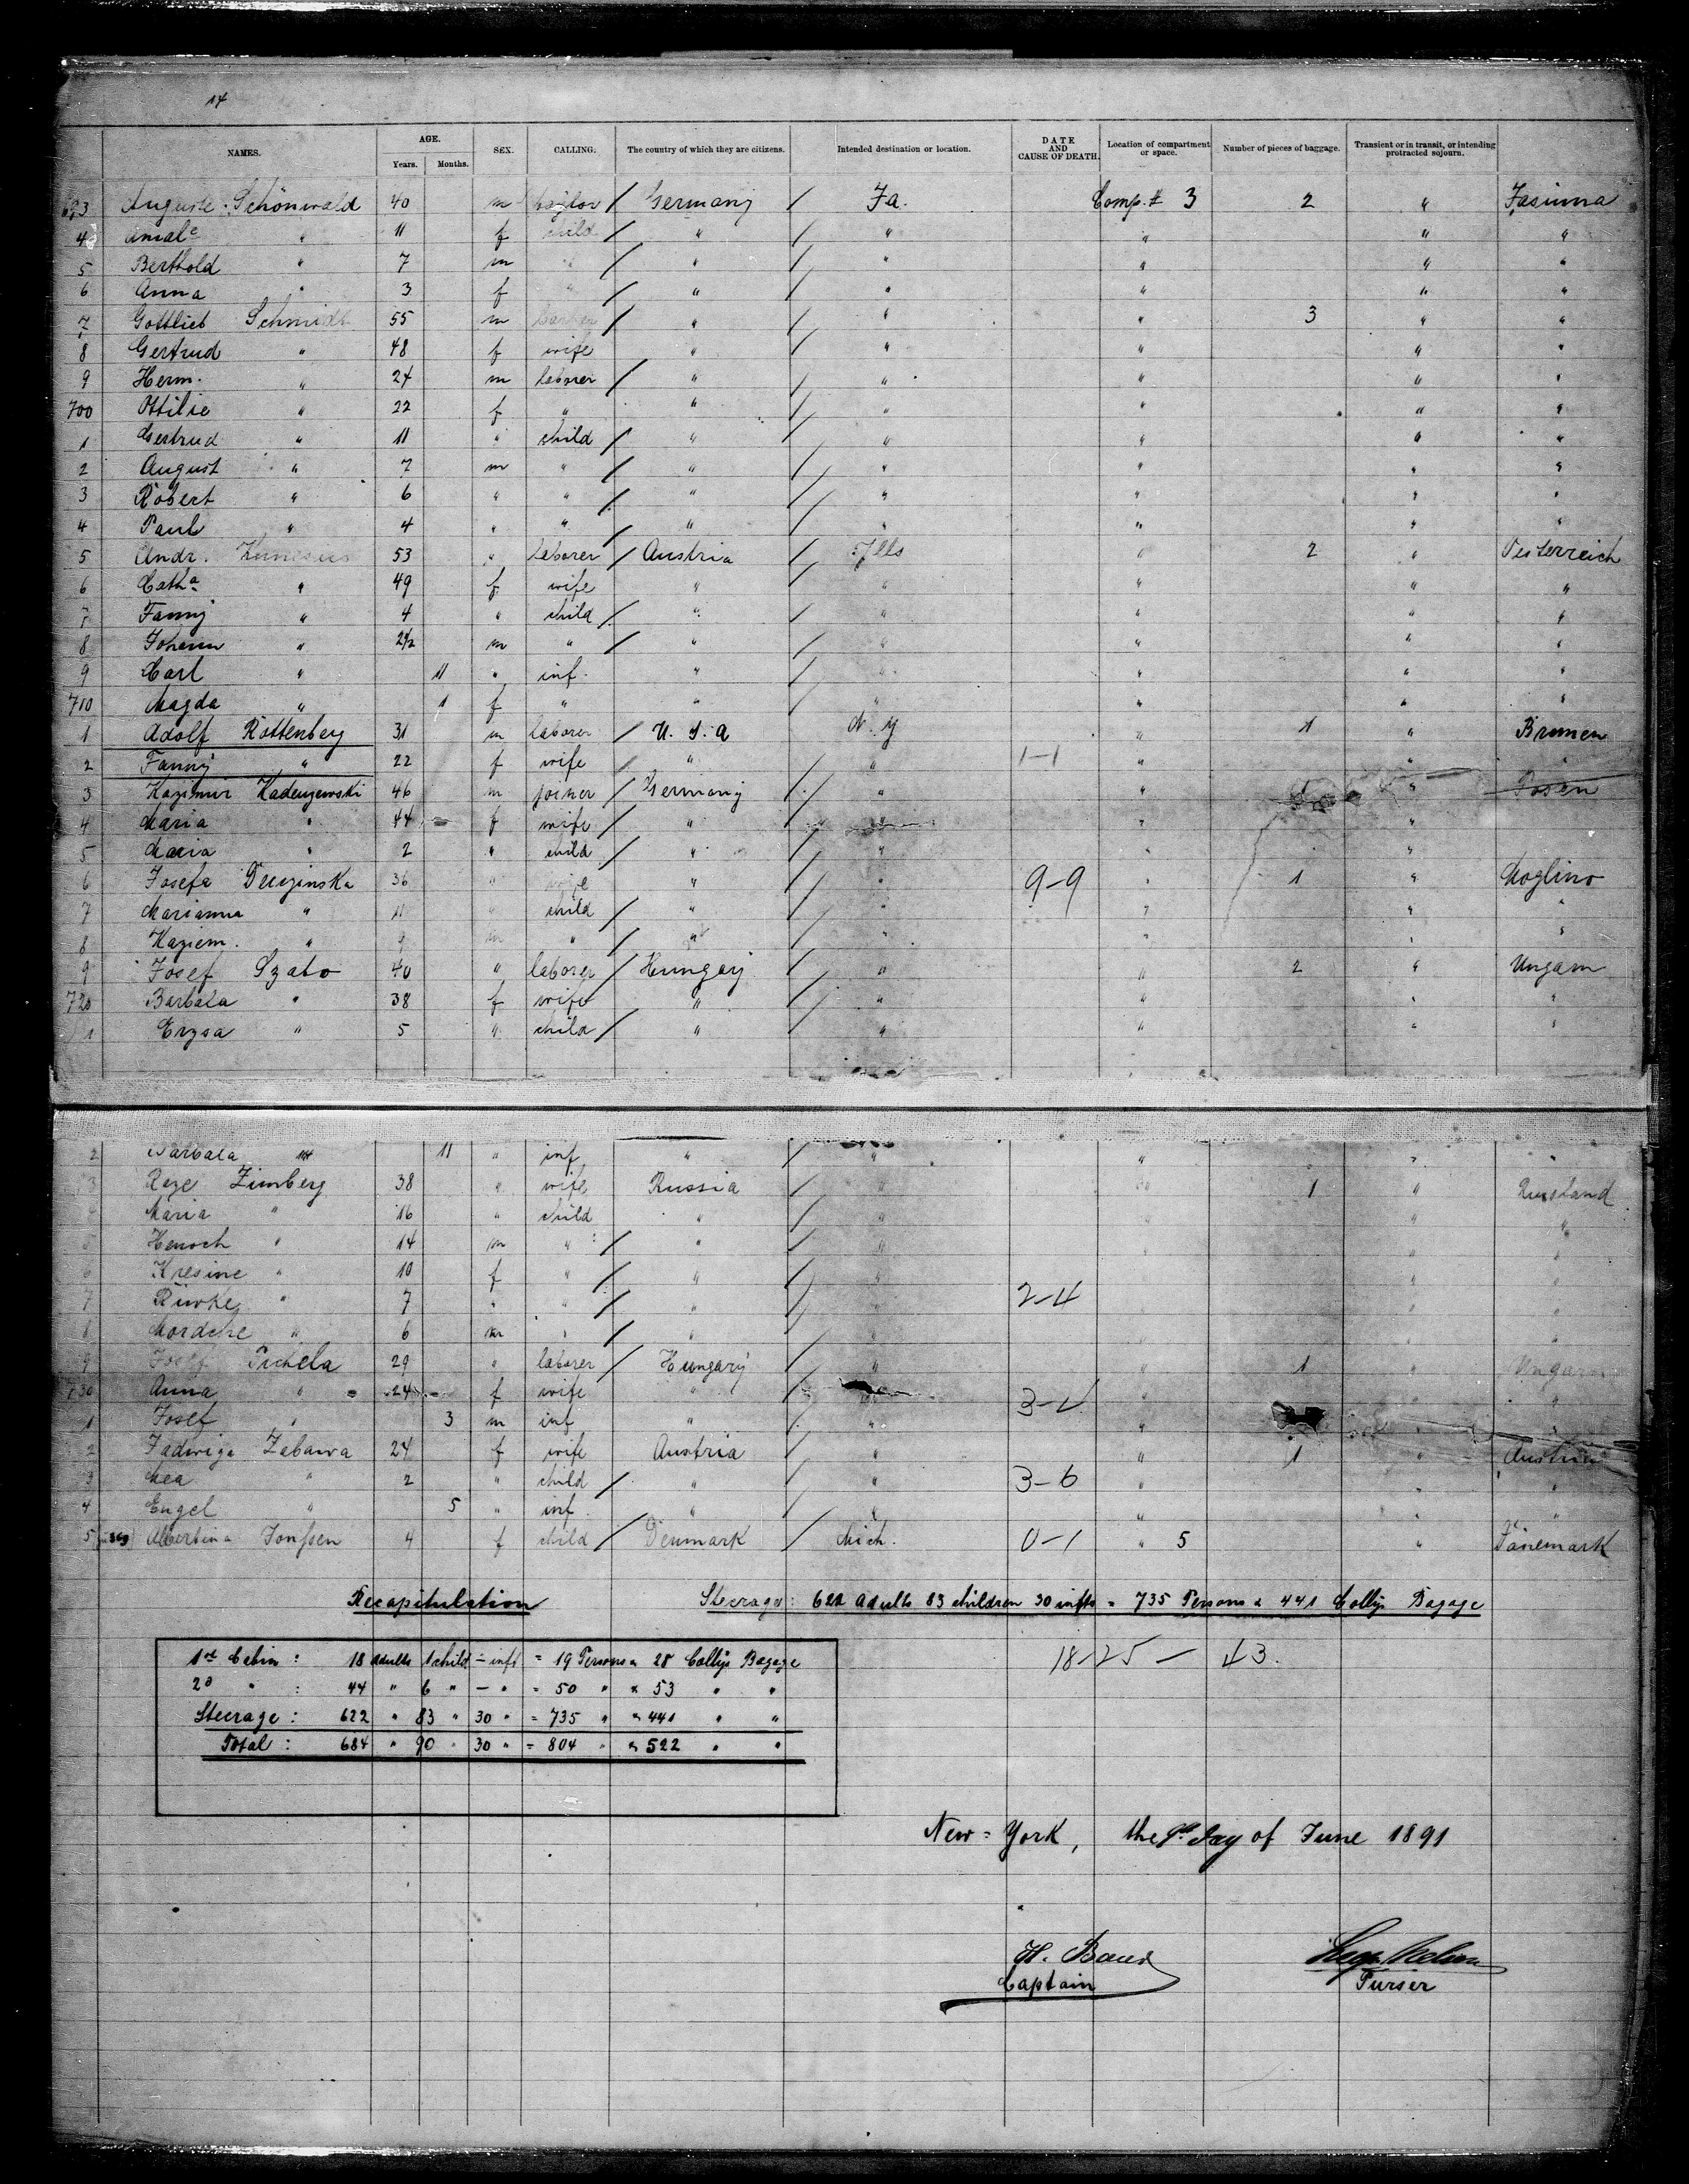 14
NAMES. AGE. Years. Months. SEX. CALLING. The country of which they are citizens. Intended destination or location. DATE AND CAUSE OF DEATH. Location of compartment or space. Number of pieces of baggage. Transient or in transit, or intending protracted sojourn.
693 Auguste Schönwald 40 m Germany / Comp. # 3 2 "
4 " 11 f child " / " " " "
5 Berthold " 7 m " / " / " " " "
6 Anna " 3 f " / " / " " " "
7 Gottlieb Schmidt 55 m / " / " " 3 " "
8 Gertrud " 48 f wife " / " " " "
9 Herm. " 24 m laborer / " / " " " "
700 Ottilie " 22 f " " / " " " "
1 Gertrud " 11 " child / " / " " " "
2 August " 7 m " / " / " " " "
3 Robert " 6 " " / " / " " " "
4 Paul " 4 " " / " / " " " "
5 Andr. 53 " laborer / Austria / Ills " 2 " Oesterreich
6 Catha " 49 f wife " / " " " "
7 Fanny " 4 " child / " / " " " "
8 Johann " 2 1/2 m " / " / " " " "
9 Carl " 11 " inf. " / " " " "
710 Magda " 1 f " " / " " " "
1 Adolf Rottenberg 31 m laborer / U.S.A / N.Y " 1 "
2 Fanny " 22 f wife / " / " 1-1 " " "
3 Kazimir 46 m joiner / Germany / " " 1 " Posen
4 Maria " 44 f wife / " / " " "
5 Maria " 2 " child / " / " " "
6 Josefa 36 " wife " / " 9-9 " 1 " Moglino
7 Marianna " 11 " child / " / " " " "
8 Kaziem. " 9 m " / " / " " " "
9 Josef Szabo 40 " laborer / Hungary / " " 2 " Ungarn
720 Barbala " 38 f wife " / " " " "
1 Erzsa " 5 " child / " / " " " "
2 Barbala " 11 " inf " / " " " "
3 Zimberg 38 " wife Russia / " " 1 " Russland
Maria " 16 " child " / " " " "
5 Henoch " 14 m " / " / " " " "
6 Kresine " 10 f " / " / " " " "
7 Riwke " 7 " " / " / " 2-4 " " "
8 Mordche " 6 m " / " / " " " "
9 Josef Pichela 29 " laborer / Hungary / " " 1 " Ungarn
730 Anna " 24 f wife " / " " "
1 Josef " 3 m inf " / " " " "
2 Jadwiga Zabawa 24 f wife Austria / " " 1 " Austria
3 " 2 " child / " / " 3-6 " " "
4 Engel " 5 " inf. " / " " " "
5 Albertina Jonssen 4 f child / Denmark / Mich. 0-1 " 5 " Dänemark
Recapitulation Steerage: 622 adults 83 children 30 infts = 735 Persons & 441 Collys Bagage
1st Cabin : 18 adults 1 child - inft = 19 Persons & 28 Collys Bagage
2d " : 44 " 6 " - " = 50 " & 53 " "
Steerage : 622 " 83 " 30 " = 735 " & 441 " "
Total : 684 " 90 " 30 " = 804 " & 522 " "
18-25 - 43.
New-York, the 9th day of June 1891
Captain Purser